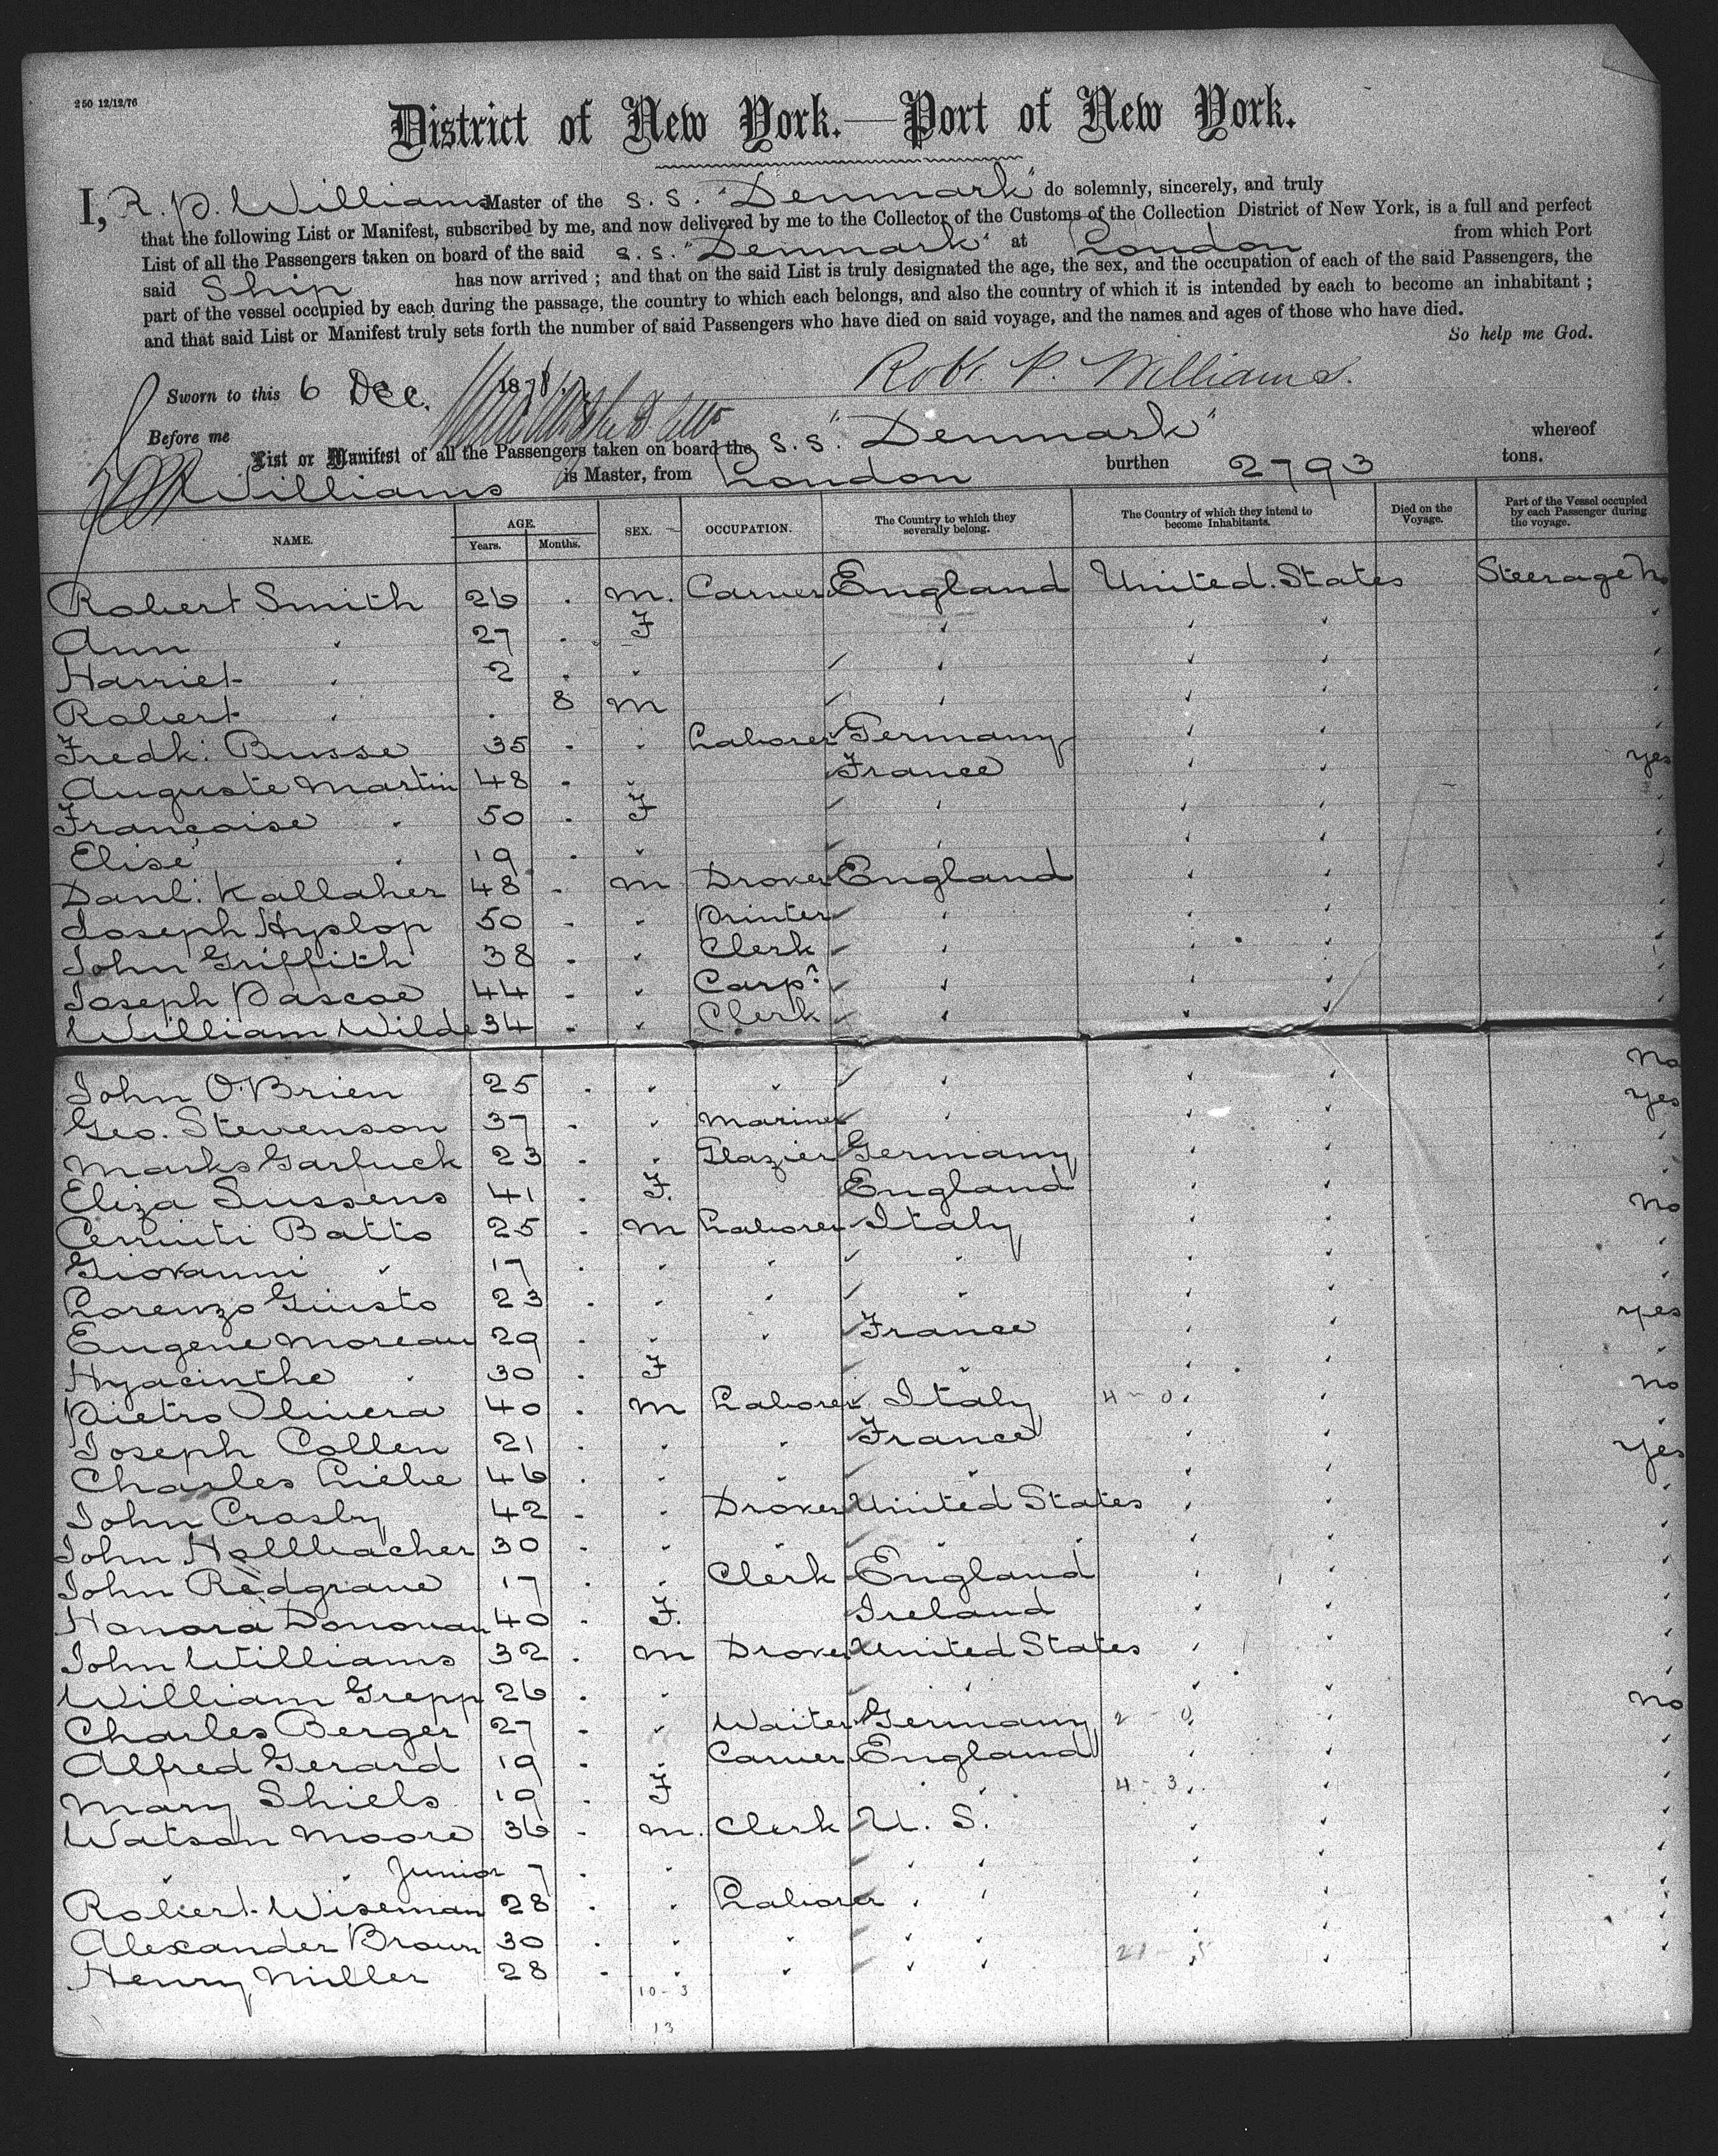 250 12/12/76
District of New York.—Port of New York.
I, R. P. Williams Master of the S. S. "Denmark" do solemnly, sincerely, and truly
that the following List or Manifest, subscribed by me, and now delivered by me to the Collector of the Customs of the Collection District of New York, is a full and perfect
List of all the Passengers taken on board of the said S. S. "Denmark" at London from which Port
said Ship has now arrived; and that on the said List is truly designated the age, the sex, and the occupation of each of the said Passengers, the
part of the vessel occupied by each during the passage, the country to which each belongs, and also the country of which it is intended by each to become an inhabitant;
and that said List or Manifest truly sets forth the number of said Passengers who have died on said voyage, and the names and ages of those who have died.
So help me God.
Sworn to this 6 Dec. 1878. Robt. P. Williams.
Before me
List or Manifest of all the Passengers taken on board the S. S. "Denmark" whereof
Williams is Master, from London burthen 2793 tons.
NAME. AGE. Years. Months. SEX. OCCUPATION. The Country to which they severally belong. The Country of which they intend to become Inhabitants. Died on the Voyage. Part of the Vessel occupied by each Passenger during the voyage.
Robert Smith 26 . M. Carver England United States Steerage No
Ann " 27 . F " " " "
Harriet " 2 . " " " " "
Robert " . 8 M " " " "
Fredk: Busse 35 . " Laborer Germany " " "
Auguste Martin 48 . " France " " yes
Françoise " 50 . F " " " "
Elise " 19 . " " " " "
Danl: Kallaher 48 . M Drover England " " "
Joseph Hyslop 50 . " Printer " " " "
John Griffith 38 . " Clerk " " " "
Joseph Pascoe 44 . " Carpr " " " "
William Wilde 34 . " Clerk " " " "
John O'Brien 25 . " " " " " No
Geo. Stevenson 37 . " Mariner " " " yes
Marks Garfuck 23 . " Glazier Germany " " "
Eliza Sussens 41 . F. England " " "
Cerruti Batto 25 . M Laborer Italy " " No
Giovanni " 17 . " " " " " "
Lorenzo Giusto 23 . " " " " " "
Eugene Moreau 29 . " " France " " yes
Hyacinthe " 30 . F " " " "
Pietro Olivera 40 . M Laborer Italy 4-0 " " No
Joseph Collen 21 . " " France " " "
Charles Liebe 46 . " " " " " yes
John Crasby 42 . " Drover United States " " "
John Hollbacher 30 . " " " " " " "
John Redgrave 17 . " Clerk England " " "
Honora Donovan 40 . F. Ireland " " "
John Williams 32 . M Drover United States " " "
William Grepp 26 . " " " " " "
Charles Berger 27 . " Waiter Germany 2-0 " " No
Alfred Gerard 19 . " Carver England " " "
Mary Shiels 19 . F " " 4-3 " " "
Watson Moore 36 . M. Clerk U. S. " " "
" " Junior 7 . " " " " " "
Robert Wiseman 28 . " Laborer " " " " "
Alexander Brown 30 . " " " " " " "
Henry Miller 28 . " " " " 21-5 " " "
10-3
13